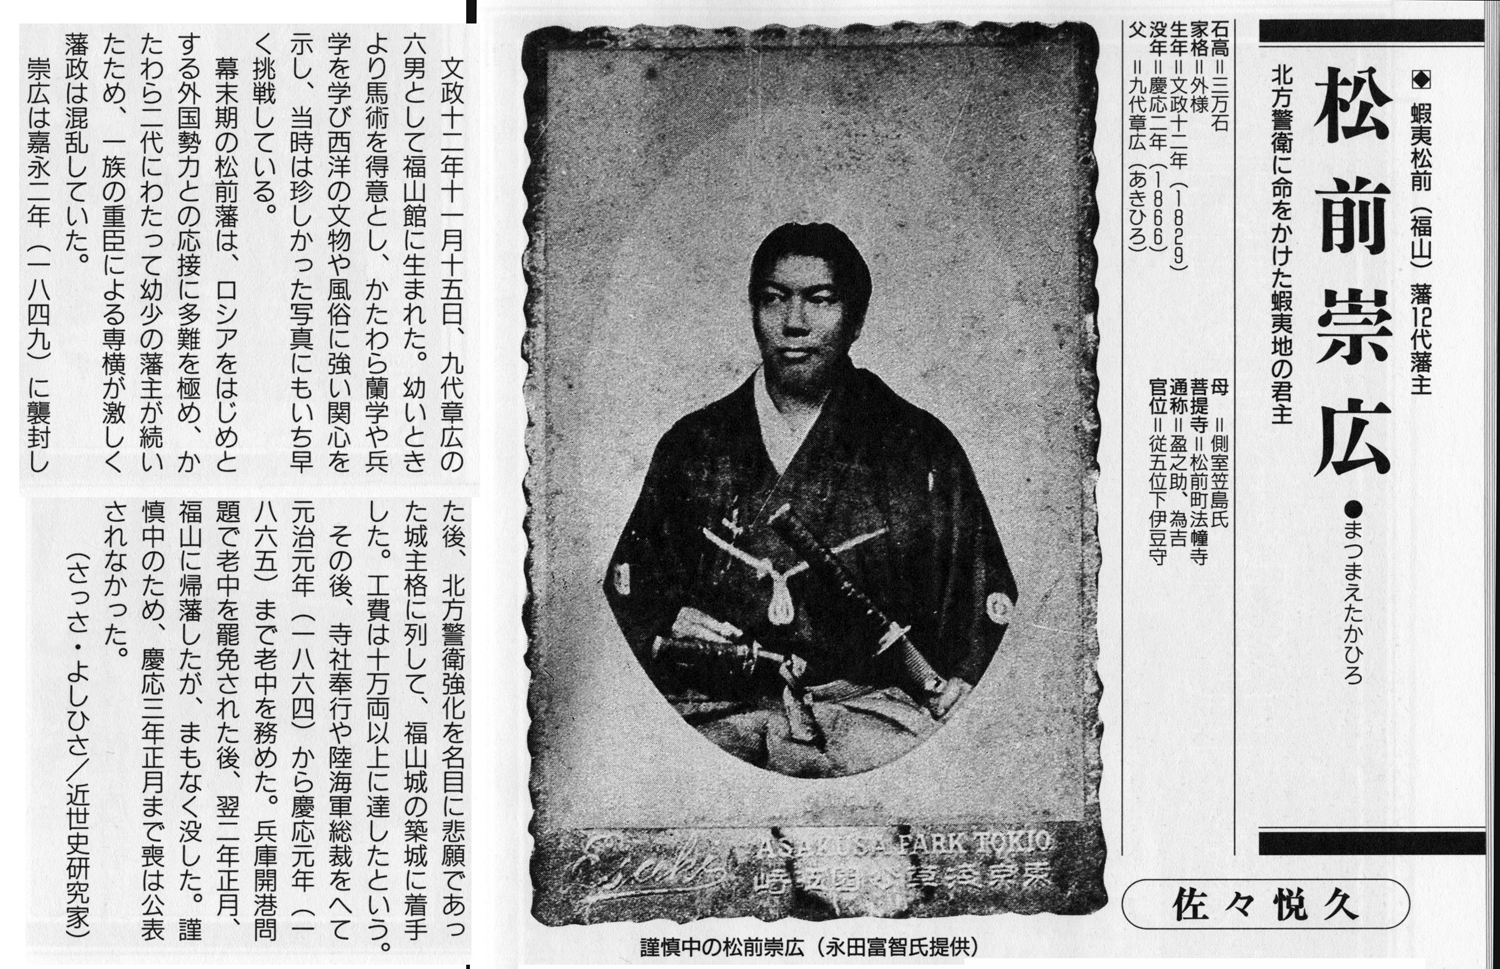 ◆ 蝦夷松前（福山）藩12代藩主
松前崇広●まつまえたかひろ
北方警衛に命をかけた蝦夷地の君主
佐々悦久
石高＝三万石
家格＝外様
生年＝文政十二年（1829）
没年＝慶応二年（1866）
父　＝九代章広（あきひろ）
母　＝側室笠島氏
菩提寺＝松前町法幢寺
通称＝盈之助、為吉
官位＝従五位下伊豆守
ASAKUSA PARK TOKIO
謹慎中の松前崇広（永田富智氏提供）
文政十二年十一月十五日、九代章広の
六男として福山館に生まれた。幼いとき
より馬術を得意とし、かたわら蘭学や兵
学を学び西洋の文物や風俗に強い関心を
示し、当時は珍しかった写真にもいち早
く挑戦している。
幕末期の松前藩は、ロシアをはじめと
する外国勢力との応接に多難を極め、か
たわら二代にわたって幼少の藩主が続い
たため、一族の重臣による専横が激しく
藩政は混乱していた。
崇広は嘉永二年（一八四九）に襲封し
た後、北方警衛強化を名目に悲願であっ
た城主格に列して、福山城の築城に着手
した。工費は十万両以上に達したという。
その後、寺社奉行や陸海軍総裁をへて
元治元年（一八六四）から慶応元年（一
八六五）まで老中を務めた。兵庫開港問
題で老中を罷免された後、翌二年正月、
福山に帰藩したが、まもなく没した。謹
慎中のため、慶応三年正月まで喪は公表
されなかった。
（さっさ・よしひさ／近世史研究家）